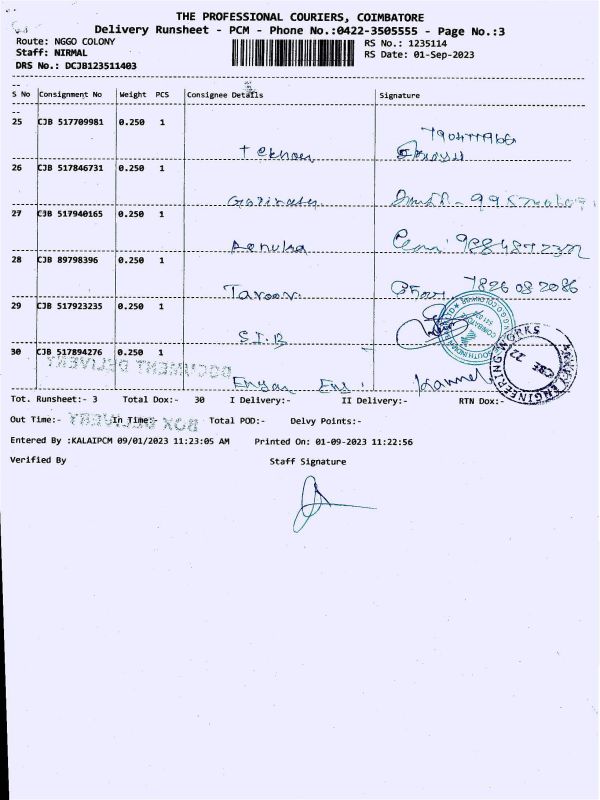 THE PROFESSIONAL COURIERS, COIMBATORE
Delivery Runsheet - PCM - Phone No.:0422-3505555 - Page No.:3
Route: NGGO COLONY
RS No.: 1235114
Staff: NIRMAL
RS Date: 01-Sep-2023
DRS No.: DCJB123511403
S No Consignment No Weight PCS Consignee Details Signature
25 CJB 517709981 0.250 1
26 CJB 517846731 0.250 1
27 CJB 517940165 0.250 1
28 CJB 89798396 0.250 1
7826082086
29 CJB 517923235 0.250 1
S.I.B
30 CJB 517894276 0.250 1
DOCUMENT DELIVERY
Tot. Runsheet:- 3 Total Dox:- 30 I Delivery:- II Delivery:- RTN Dox:-
Out Time:- In Time:- Total POD:- Delvy Points:-
BOX DELIVERY
Entered By :KALAIPCM 09/01/2023 11:23:05 AM Printed On: 01-09-2023 11:22:56
Verified By Staff Signature